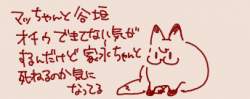 マッちゃんと谷垣
オチゥできてない気が
するんだけど家永ちゃんと
死ねるのか気に
なってる